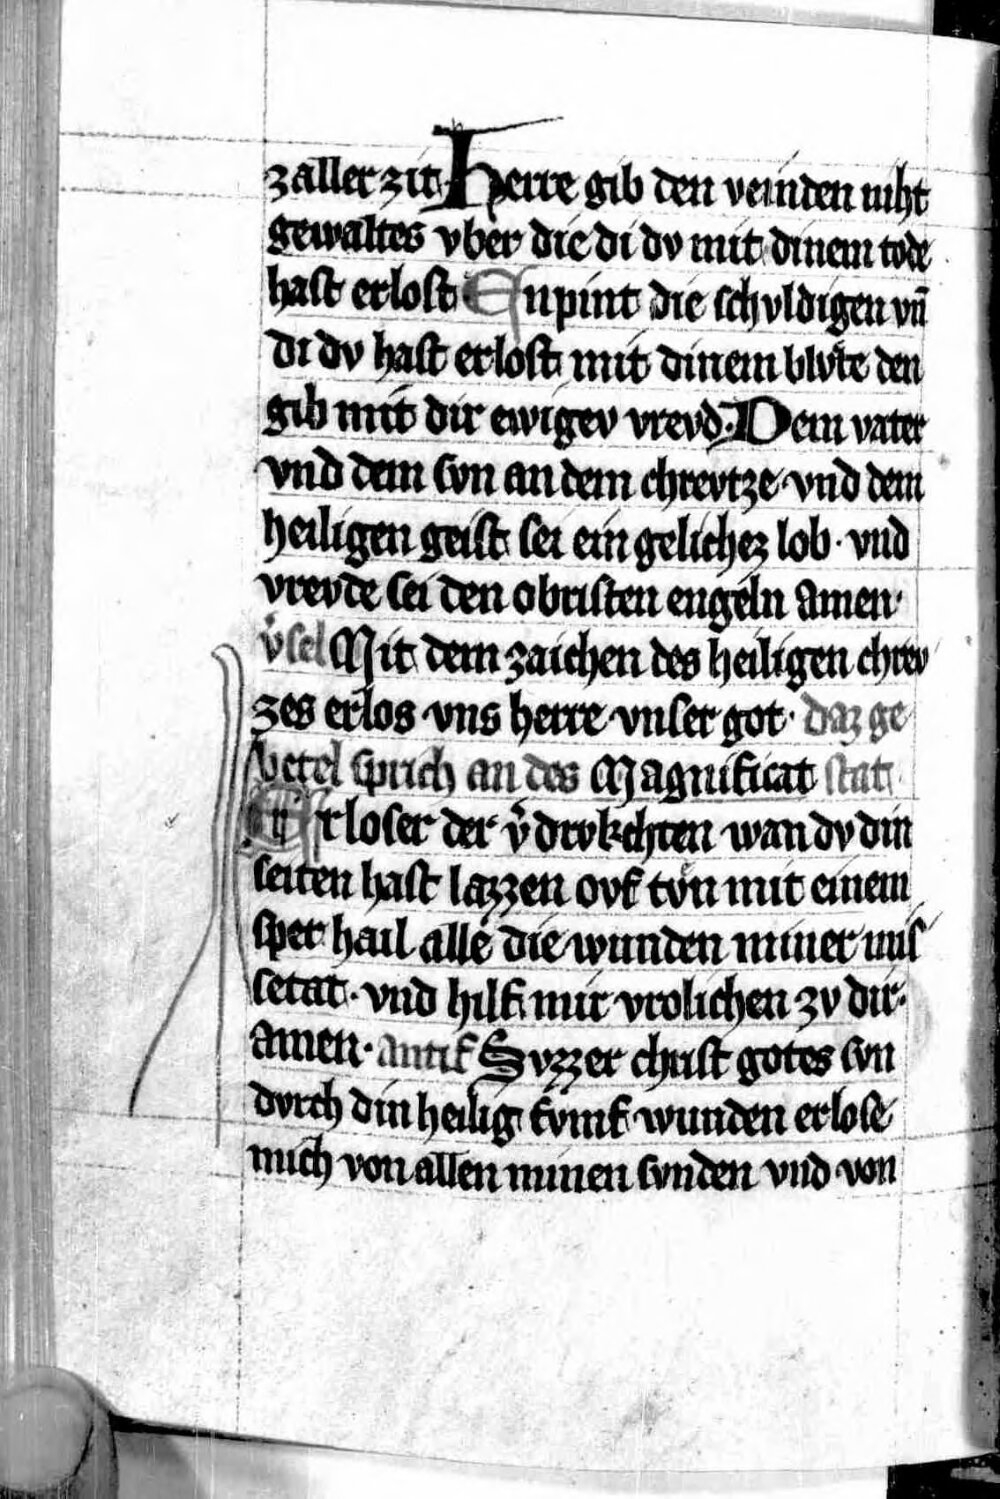 zaller zit· Herre gib den veinden niht
gewaltes vber die di dv mit dinem tode
hast erlost Enpint die schvldigen vn̄
di dv hast erlost mit dinem blvͦte den
gib mit dir ewigev vrevd· Dem vater
vnd dem svn an dem chrevtze· vnd dem
heiligen geist sei ein gelichez lob· vnd
vrevde sei den obristen engeln amen·
v̓sel Mit dem zaichen des heiligen chrev
zes erlos vns herre vnser got· daz ge
betel sprich an des Magnificat stat
Erloser der v̓drvkchten wan dv din
seiten hast lazzen ovf tvͦn mit einem
sper hail alle die wunden miner mis
setat· vnd hilf mir vrolichen zv dir·
amen· antif Svzzer christ gotes svn
dvrch din heilig fvmf wunden erlose
mich von allen minen svnden vnd von